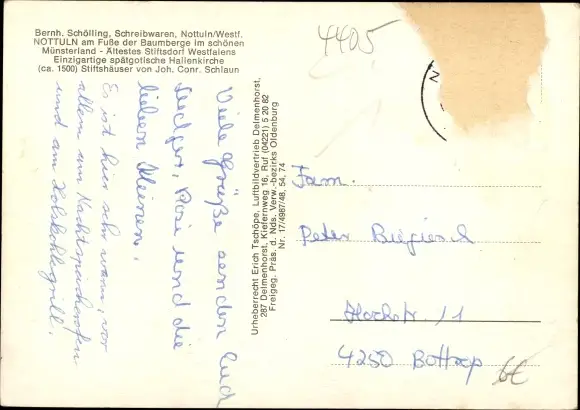 Bernh. Schölling, Schreibwaren, Nottuln/Westf.
NOTTULN am Fuße der Baumberge im schönen
Münsterland - Ältestes Stiftsdorf Westfalens
Einzigartige spätgotische Hallenkirche
(ca. 1500) Stiftshäuser von Joh. Conr. Schlaun
4405
Viele Grüße senden Euch
und die
lieben Kleinen.
Es ist hier sehr warm, vor
allem am
und am Holzkohlegrill.
Urheberrecht Erich Tschöpe, Luftbildvertrieb Delmenhorst,
287 Delmenhorst, Kiefernweg 16, Ruf (04221) 5 20 82
Freigeg. Präs. d. Nds. Verw.-bezirks Oldenburg
Nr. 17/4967/48, 54, 74
Fam.
Peter
11
4250 Bottrop
6€